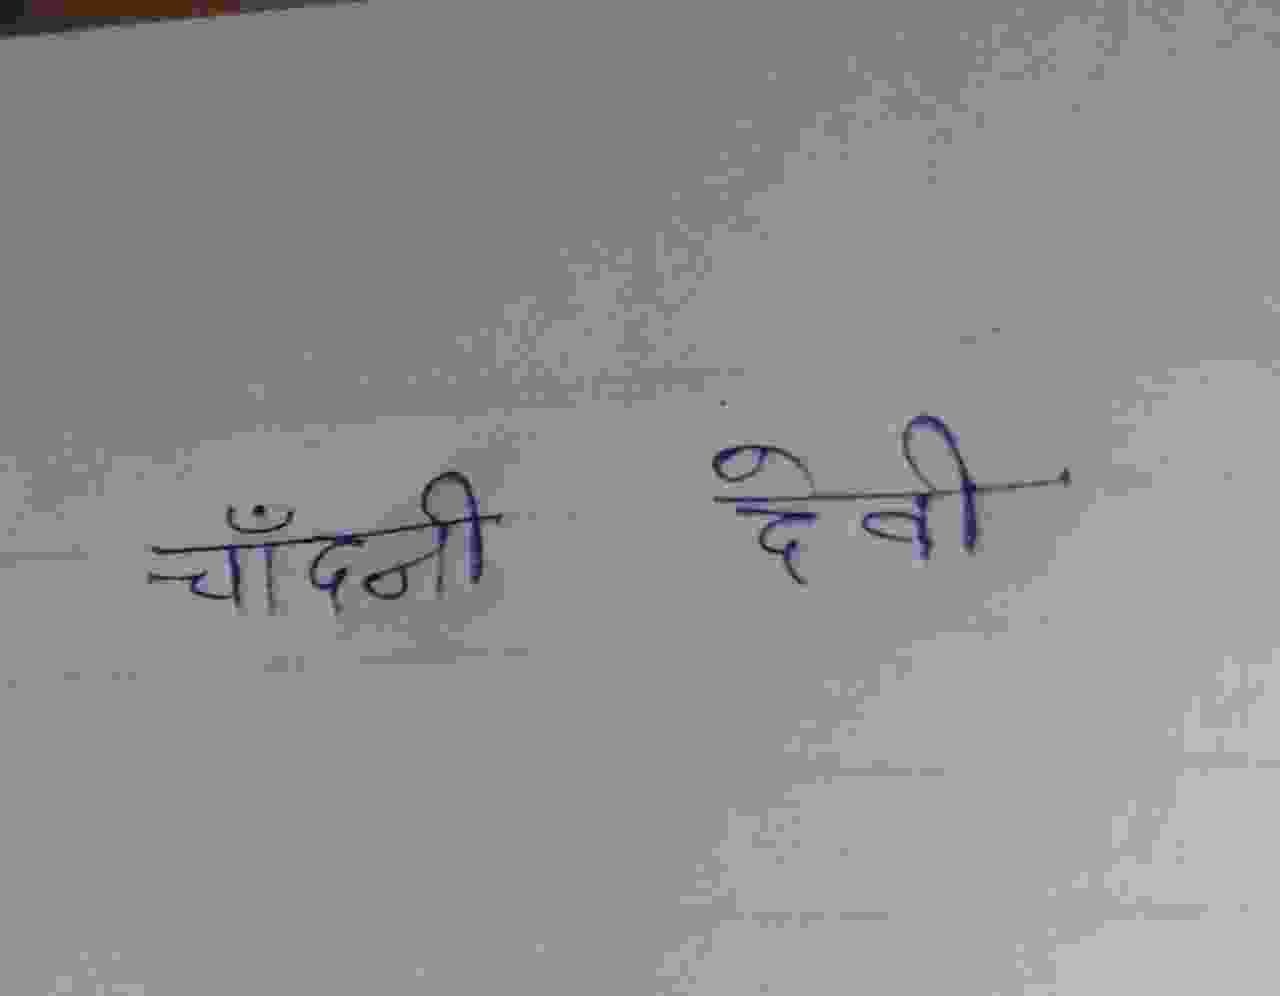 चाँदनी देवी